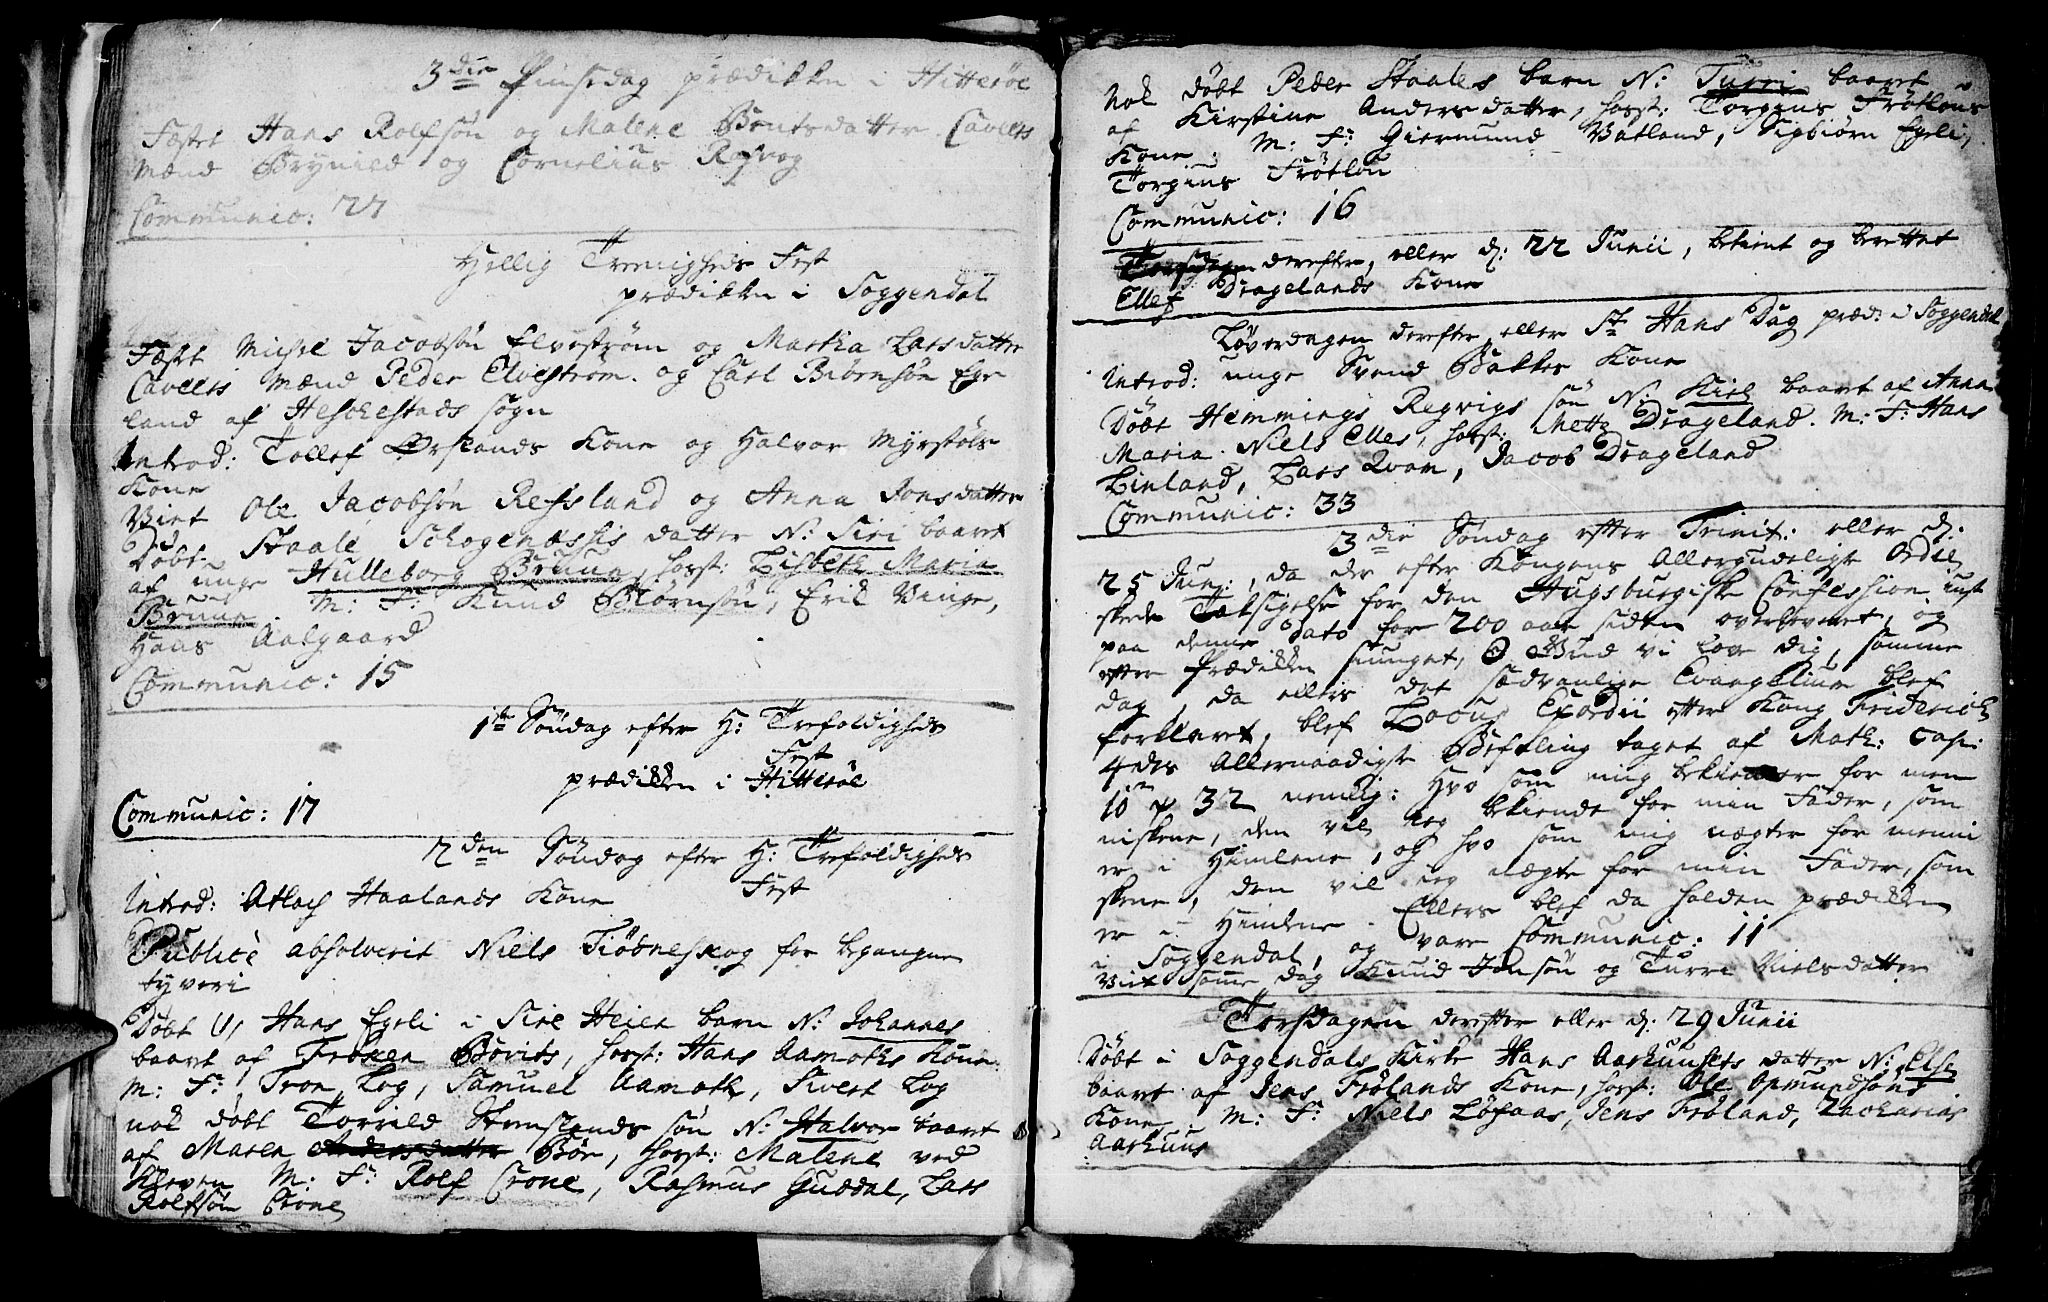 3die Pinsedag prædikken i Hitterøe
Fæstet Hans Rolfsøn og Malene Bentsdatter. Cavells
mænd Brynild og Cornelius Rosvog
Communic: 27
Hellig Treenigheds Fest
prædikken i Soggendal
Fæstet Michel Jacobsøn Elvestrøm og Martha Larsdatter
Cavells mænd Peder Elvestrøm. og Carl Biørnsøn Ege
land af Heschestads sogn
Introd: Tollef Ørslands Kone og Halvor Myrstøls
Kone
Viet Ole Jacobsøn Refsland og Anna Jonsdatter
Døbt Staale Schogenæssis datter N: Siri baaret
af unge Hulleborg Bruun, hosst: Lisbeth Maria
Bruun. M: F: Knud Biørnsøn, Erik Vinge,
Hans Aalgaard
Communic: 15
1te Søndag efter H: Trefoldigheds
Fest
prædikken i Hitterøe
Communic: 17
2den Søndag efter H: Trefoldigheds
Fest
Introd: Atlach Haalands Kone
Publicè absolverit Niels Tiødneskog for begangne
tyveri
Døbt Hans Egeli i Sire Heien barn N: Johannes
baaret af Froken Børits, hosst: Hans Aamoths Kone
M: F: Tron Log, Samuel Aamoth, Sivert Log
nok døbt Torrild Stenslands søn N: Halvor baaret
af Maren Andersdatter Bøe, hosst: Malene ved
Kleven M: F: Rolf Crone, Rasmus Guddal, Lars
Rolfsøn Crone
Nok døbt Peder Staales barn N: Turri baaret
af Kirstine Andersdatter, hosst: Torgius Frøtløus
Kone. M: F: Giermund Vatland, Sigbiørn Egeli,
Torgius Frøtløu
Communic: 16
Torsdagen derefter, eller d: 22 Junii, bekient og berettet
Ellef Dragelands Kone
Løverdagen derefter eller St Hans Dag præd: i Soggendal
Introd: unge Svend Bakkes Kone
Døbt Hemmings Regvigs søn N: Kiel baaret af Anna
Maria Niels Elles, hosst: Mette Drageland. M: F: Hans
Linland, Lars Qvam, Jacob Drageland
Communic: 33
3die Søndag efter Trinit: eller d:
25 Junj:, da der efter Kongens Allergudeligste Ordre
skede Taksigelse for den Augsburgiske Confession, just
paa denne Dato for 200 aar siden overleveret, og
efter Prædikken siunget, O Gud vi love dig, samme
dag, da ellers det sædvanlige Evangelium blef
forklaret, blef Locus Exordii efter Kong Friderich
4des Allernaadigste Befaling taget af Math: Capi:
10 v 32 nemlig: Hvo som mig bekiender for men
niskene, den vil ieg bekiende for min Fader, som
er i Himlene, og hvo som mig nægter for menni
skene, den vil ieg nægte for min Fader, som
er i Himlene. Ellers blef da holden prædikken
i Soggendal, og vare Communic: 11
Viet samme dag Knud Jonsøn og Turri Nielsdatter
Torsdagen derefter eller d: 29 Junii
Døbt i Soggendals Kirke Hans Aarkunsets datter N: Else
baaret af Jens Frølands Kone, hosst: Ole Opmundsøns
Kone M: F: Niels Løfaas, Jens Frøland, Zacharias
Aarkuus